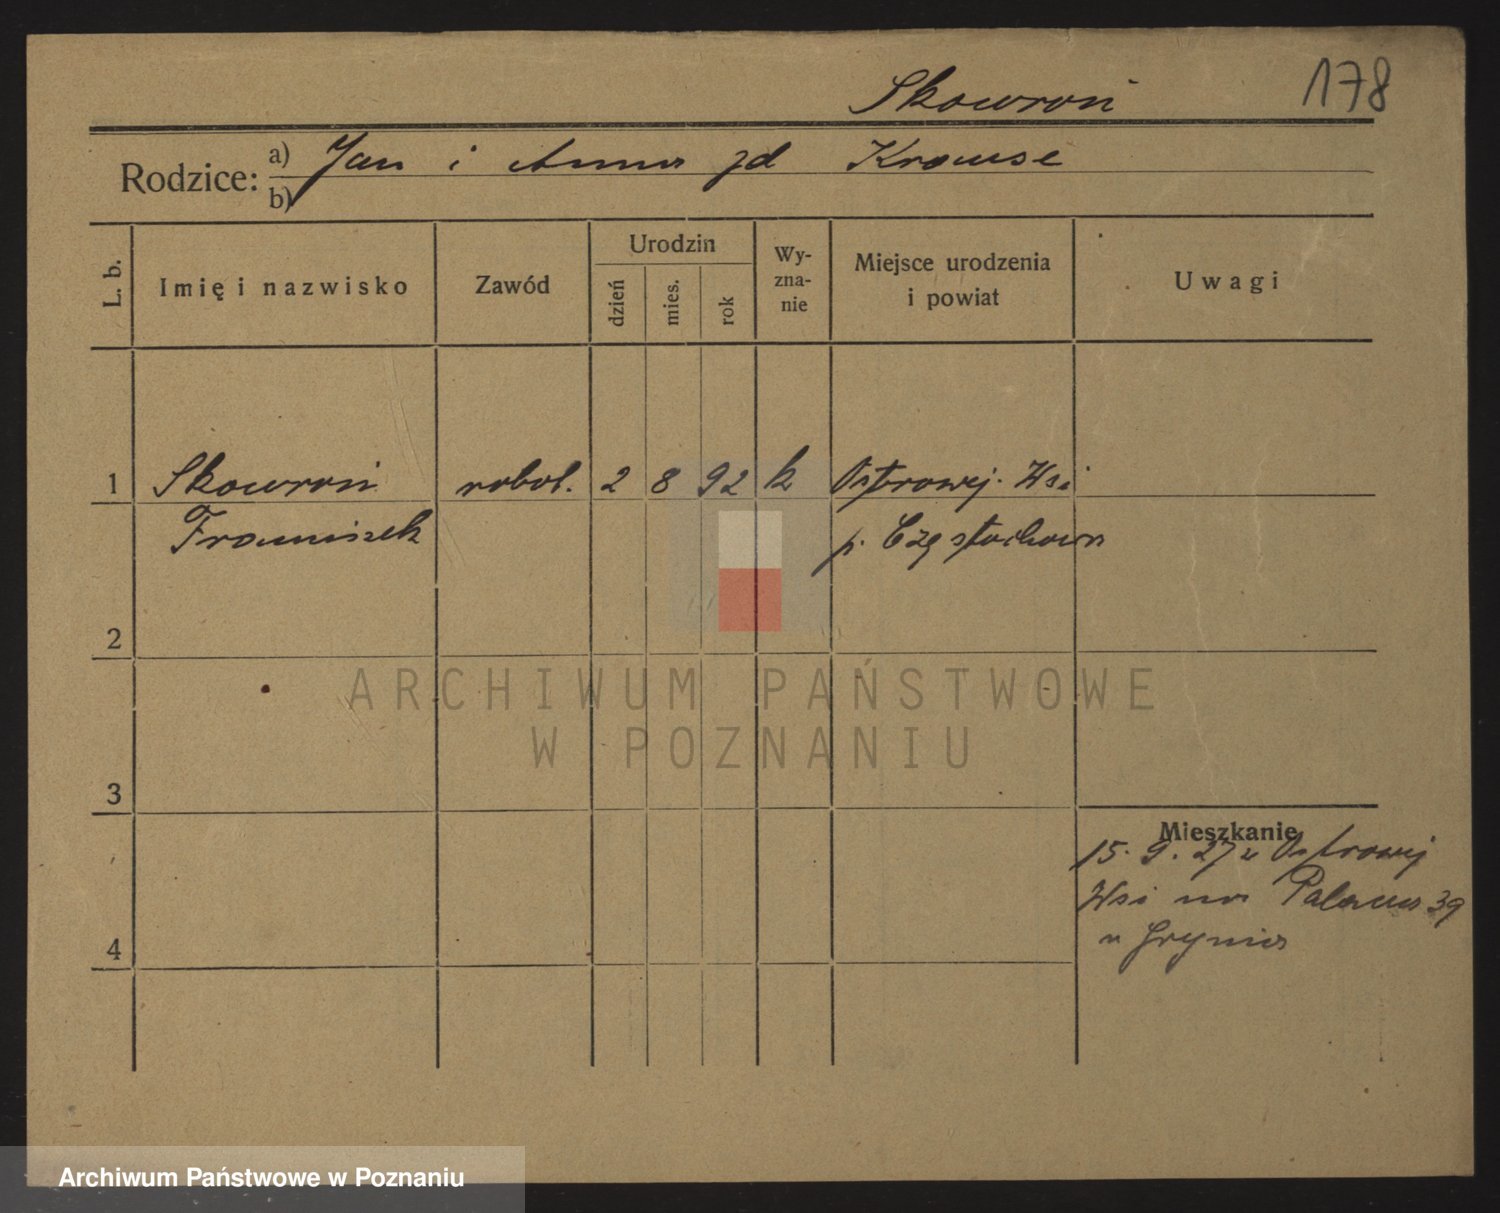 Skowroń 178
Rodzice: a) Jan i Anna zd Krause
b)
L. b. Imię i nazwisko Zawód Urodzin dzień mies. rok Wy-zna-nie Miejsce urodzenia i powiat Uwagi
1 Skowroń robot. 2 8 92 k Ostrowej. Wsi
Franciszek p. Częstochowa
2
ARCHIWUM PAŃSTWOWE
W POZNANIU
3
Mieszkanie
15. 9. 27 z Ostrowej
Wsi na Palacza 39
u
4
Archiwum Państwowe w Poznaniu